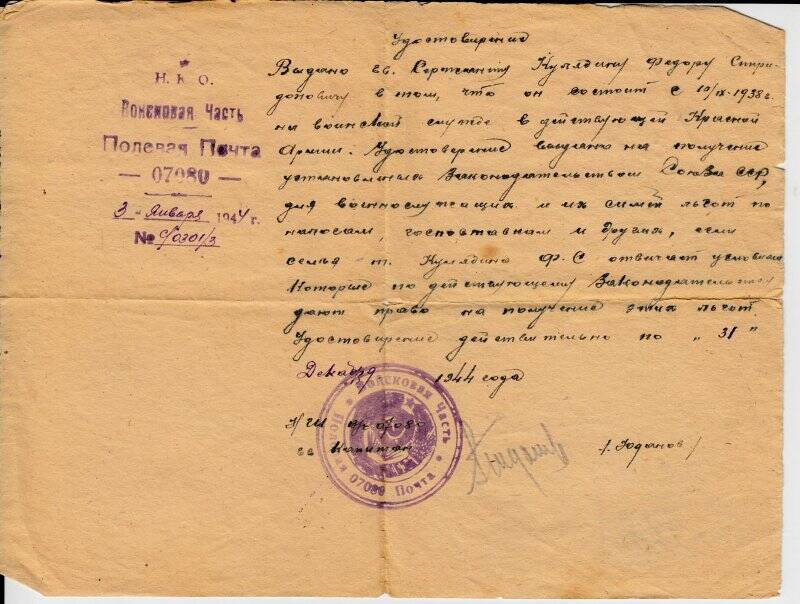 Н. К. О.
Воисковая Часть
Полевая Почта
— 07080 —
3 - Января 1944 г.
№ 0301/3
Удостоверение
Выдано гв. Сержанту Кулядину Федору Спири-
доновичу в том, что он состоит с 10/IX-1938 г.
на воинской службе в действующей Красной
Армии. Удостоверение выдано на получение
установленых Законодательством Союза ССР,
для военнослужащих и их семей льгот по
налогам, госпоставкам и других, если
семья т. Кулядина Ф. С отвечает условиям
Которые по действующему Законодательству
дают право на получение этих льгот.
Удостоверение действительно по „ 31 "
Декабря 1944 года
НШ в/ч 07080
гв Капитан
Воисковая Часть
07080 Почта